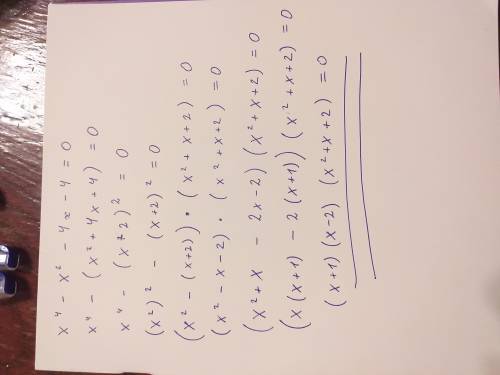 x⁴ - x² - 4x - 4 = 0
x⁴ - (x² + 4x + 4) = 0
x⁴ - (x + 2)² = 0
(x²)² - (x+2)² = 0
(x² - (x+2)) · (x² + x + 2) = 0
(x² - x - 2) · (x² + x + 2) = 0
(x² + x - 2x - 2) (x² + x + 2) = 0
(x (x+1) - 2 (x+1)) (x² + x + 2) = 0
(x+1) (x-2) (x² + x + 2) = 0